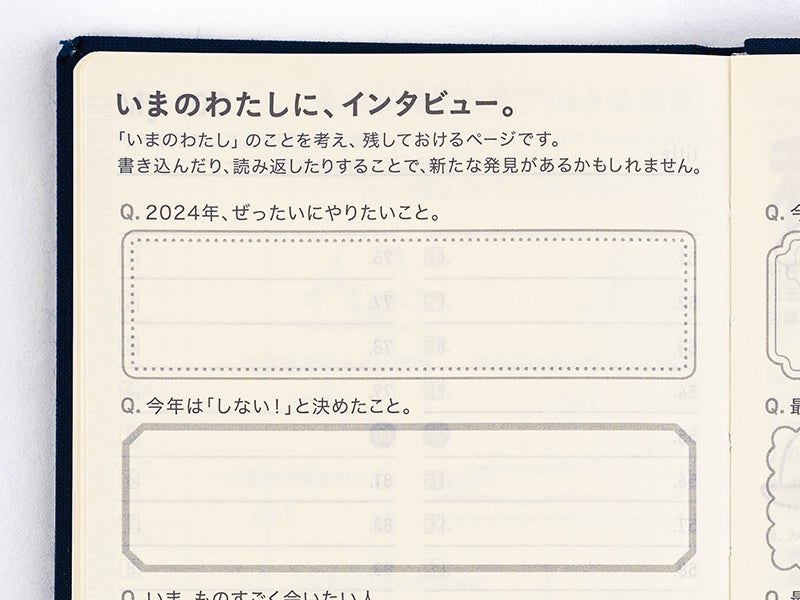 いまのわたしに、インタビュー。
「いまのわたし」のことを考え、残しておけるページです。
書き込んだり、読み返したりすることで、新たな発見があるかもしれません。
Q. 2024年、ぜったいにやりたいこと。
Q. 今年は「しない！」と決めたこと。
Q. いま、ものすごく会いたい人
Q. 今
Q. 最